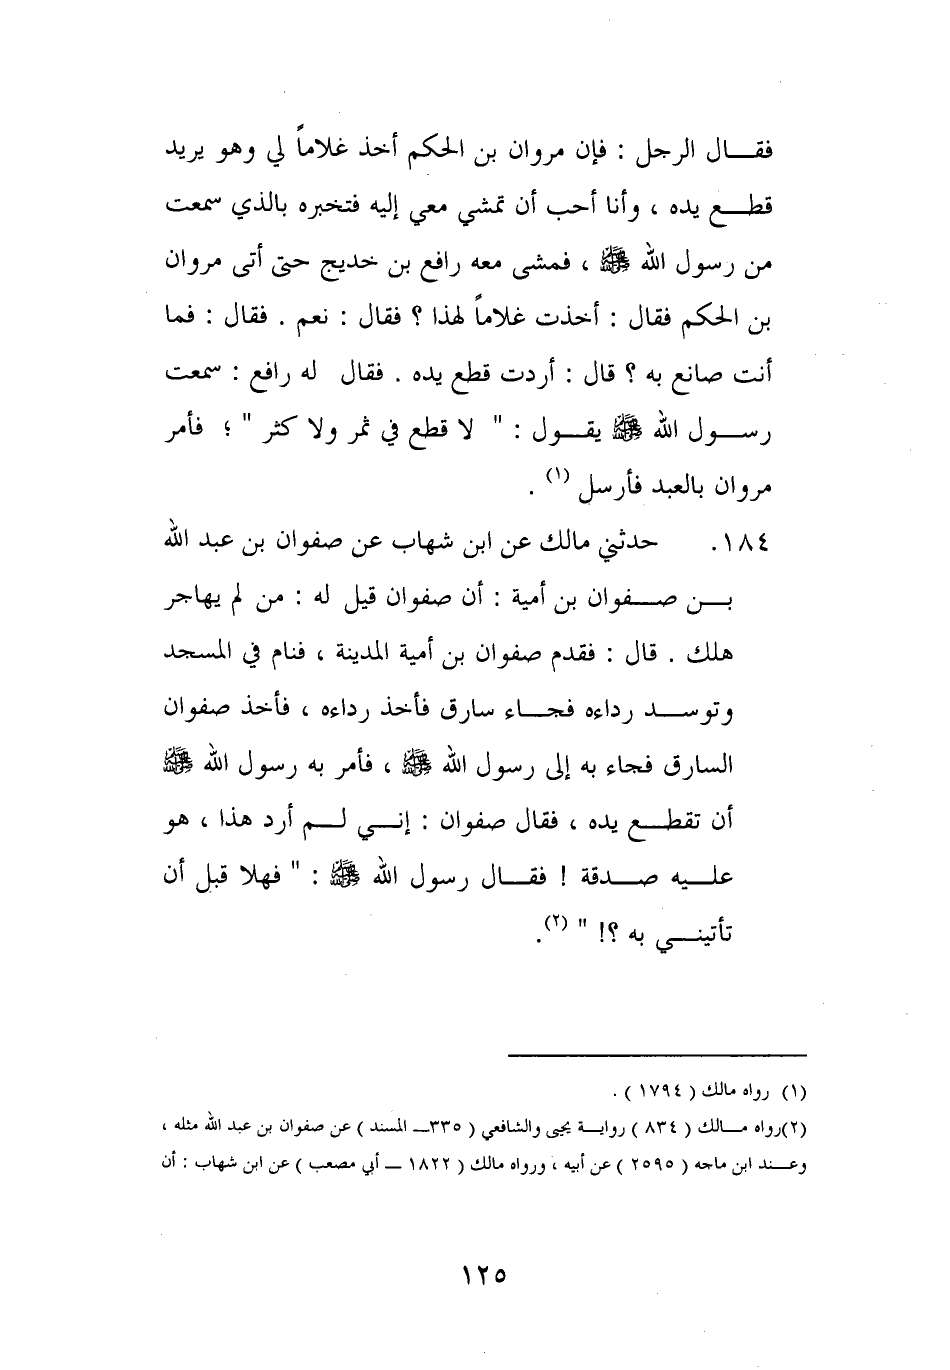 فقـــال الرجل : فإن مروان بن الحكم أخذ غلاماً لي وهو يريد
قطـــع يده ، وأنا أحب أن تمشي معي إليه فتخبره بالذي سمعت
من رسول الله ﷺ ، فمشى معه رافع بن خديج حتى أتى مروان
بن الحكم فقال : أخذت غلاماً لهذا ؟ فقال : نعم . فقال : فما
أنت صانع به ؟ قال : أردت قطع يده . فقال له رافع : سمعت
رســـول الله ﷺ يقـــول : " لا قطع في ثمر ولا كثر " ؛ فأمر
مروان بالعبد فأرسل (١) .
١٨٤. حدثني مالك عن ابن شهاب عن صفوان بن عبد الله
بـــن صـــفوان بن أمية : أن صفوان قيل له : من لم يهاجر
هلك . قال : فقدم صفوان بن أمية المدينة ، فنام في المسجد
وتوســـد رداءه فجـــاء سارق فأخذ رداءه ، فأخذ صفوان
السارق فجاء به إلى رسول الله ﷺ ، فأمر به رسول الله ﷺ
أن تقطـــع يده ، فقال صفوان : إنـــي لـــم أرد هذا ، هو
علـــيه صـــدقة ! فقـــال رسول الله ﷺ : " فهلا قبل أن
تأتينـــي به ؟! " (٢).
(١) رواه مالك ( ١٧٩٤ ) .
(٢)رواه مـــالك ( ٨٣٤ ) روايـــة يحيى والشافعي ( ٣٣٥ــ المسند ) عن صفوان بن عبد الله مثله ،
وعـــند ابن ماجه ( ٢٥٩٥ ) عن أبيه ، ورواه مالك ( ١٨٢٢ ــ أبي مصعب ) عن ابن شهاب : أن
١٢٥